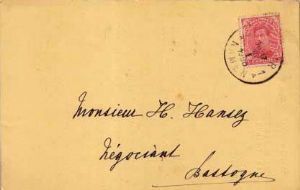 Monsieur H. Hansez
Négociant
Bastogne